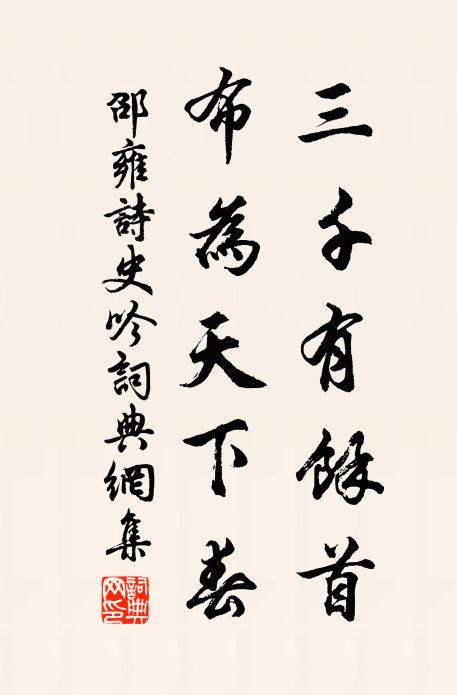 三千有餘首
布為天下春
邵雍詩史吟詞典網集
詞典
网印